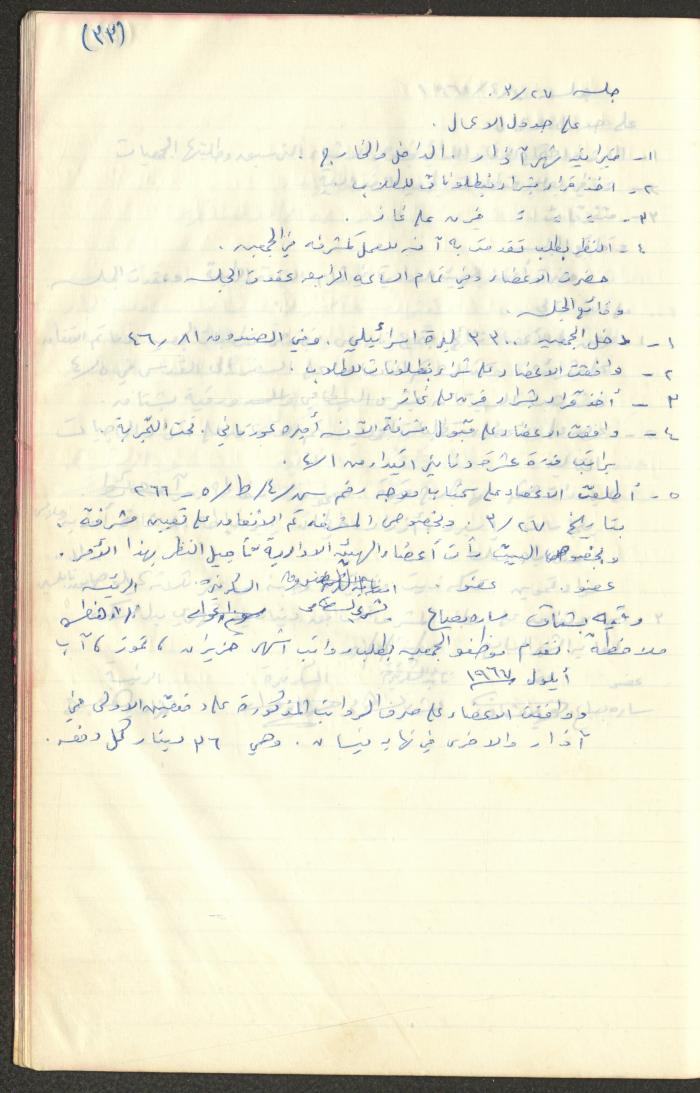 (٣٣)
جلسة ٢٧/٣.
على جدول الاعمال.
١- ميزانية شهر آذار. الداخل والخارج.
٢- اخذ قرار بشراء بنطلونات للطلاب
٣- فرن على غاز.
٤- النظر بطلب تقدمت به آنسة للعمل كمشرفة في الجمعية.
حضرت الاعضاء وفي تمام الساعة الرابعة عقدت الجلسة
وقائع الجلسة.
١- دخل الجمعية ٣٣٠٠ ليرة اسرائيلي. وفي الصندوق ٤٦,٨١
٢- وافقت الأعضاء على شراء بنطلونات للطلاب.
٣- أخذ قرار بشراء فرن على غاز
٤- وافقت الاعضاء على قبول مشرفة الآنسة أميره عورتاني. تحت التجربة.
براتب قدرة عشرة دنانير ابتداء من ٤/١.
٥- أطلعت الاعضاء على كتاب موجه رقم س/٤/ط/٥-٢٦٦
بتاريخ ٢٧/٣. وبخصوص المشرفة تم الاتفاق على تعيين مشرفة.
وبخصوص البيت رأت أعضاء الهيئة الادارية تأجيل النظر بهذا الأمر.
عضو عضو امينة الصندوق السكرتيرة الرئيسة
وجيه ساره
ملاحظة. تقدم موظفو الجمعية بطلب رواتب اشهر حزيران، تموز، آب
أيلول ١٩٦٧
ووافقت الاعضاء على صرف الرواتب المذكورة على دفعتين الاولى في
آذار والاخرى في نهاية نيسان. وهي ٣٦ دينار كل دفعة.